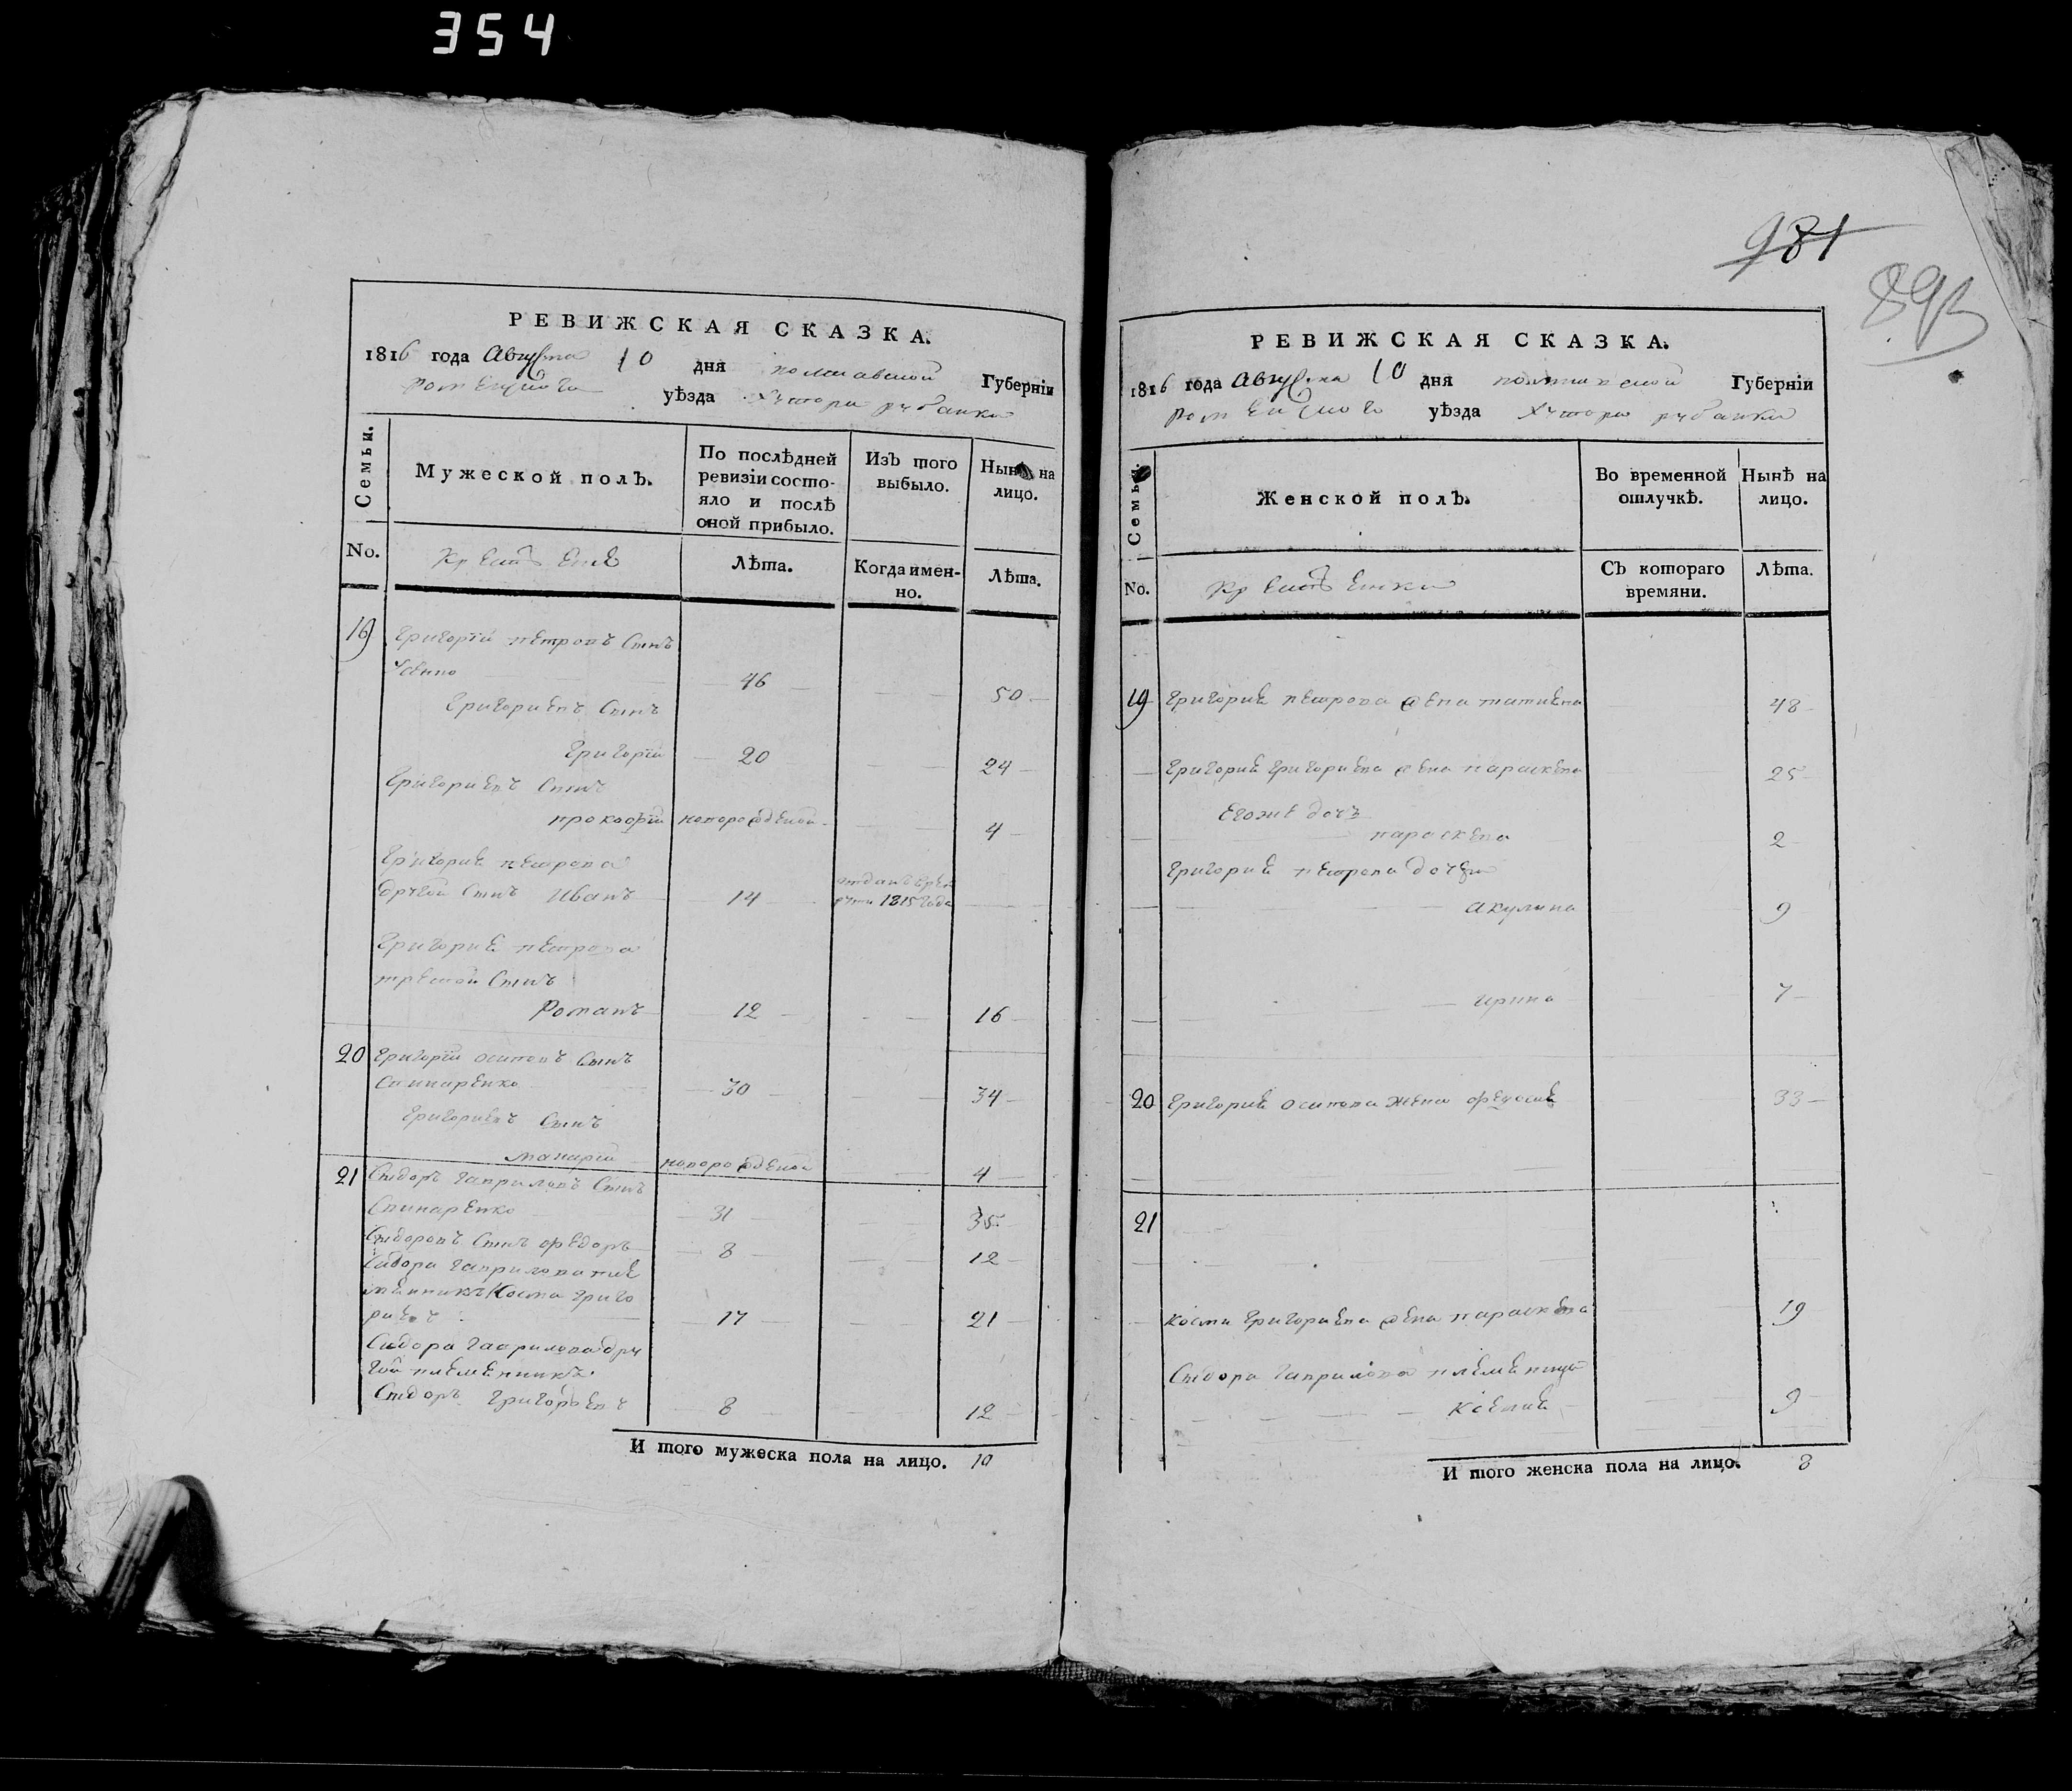 354
981
893
РЕВИЖСКАЯ СКАЗКА.
1816 года Августа 10 дня полтавской Губерніи
роменского уѣзда Хутора рубанки
Семьи.
Мужеской полъ.
По послѣдней ревизіи состояло и послѣ оной прибыло.
Изъ того выбыло.
Нынѣ на лицо.
No.
Лѣта.
Когда именно.
Лѣта.
19 Григорій петровъ Сынъ
46 50
Григориевъ Сынъ
Григорій 20 24
Григориевъ Сынъ
прокофій новорожденой 4
Григория петрова
другой Сынъ Иванъ 14 отданъ в рекруты 1815 года
Григория петрова
третой Сынъ
Романъ 12 16
20 Григорій осиповъ Сынъ
Слинаренко 30 34
Григориевъ Сынъ
макарій новорожденой 4
21 Сидоръ Гавриловъ Сынъ
Слинаренко 31 35
Сидоровъ Сынъ федоръ 8 12
Сидора Гаврилова пле
менникъ Косма Григо
риевъ 17 21
Сидора Гаврилова дру
гой племенникъ
Сидоръ Григорьевъ 8 12
И того мужеска пола на лицо. 10
РЕВИЖСКАЯ СКАЗКА.
1816 года Августа 10 дня полтавской Губерніи
роменского уѣзда Хутора рубанки
Семьи.
Женской полъ.
Во временной отлучкѣ.
Нынѣ на лицо.
No.
Съ котораго времяни.
Лѣта.
19 Григория петрова жена татияна 48
Григория Григориева жена параскева 25
Егоже дочь
параскева 2
Григория петрова дочери
акулина 9
ирина 7
20 Григория осипова жена феодосия 33
21
Космы Григориева жена параскева 19
Сидора Гаврилова племеница
Ксения 9
И того женска пола на лицо. 8